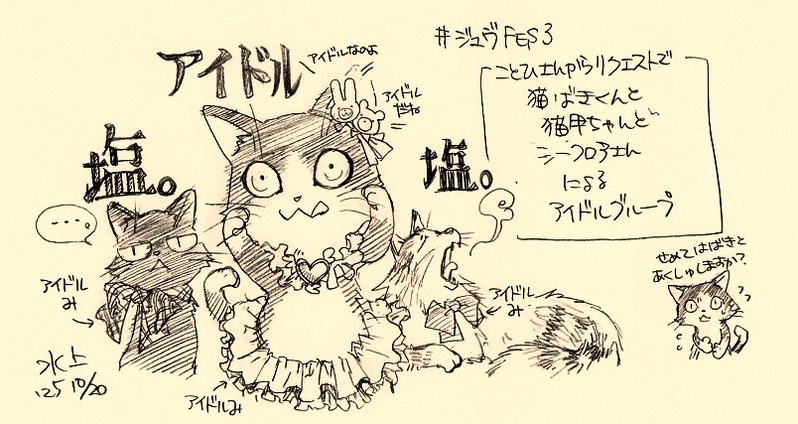 #ジュヴFES3
ことひさんからリクエストで
猫ばきくんと
猫甲ちゃんと
シークロアさん
による
アイドルグループ
アイドル
アイドルなのよ
アイドル
だね
塩。
塩。
・・・。
アイドル
み
アイドル
み
アイドルみ
せめてはばきと
あくしゅしますか?
水上
'25 10/20